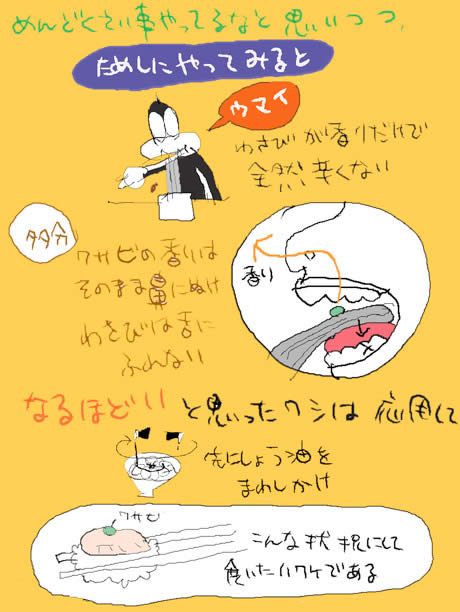 めんどくさい事やってるなと思いつつ、
ためしにやってみると
ウマイ
わさびが香りだけで
全然辛くない
多分
ワサビの香りは
そのまま鼻にぬけ
わさびは舌に
ふれない
香り
なるほど!!と思ったワシは応用して
先にしょう油を
まわしかけ
ワサビ
こんな状況にして
食いたいワケである